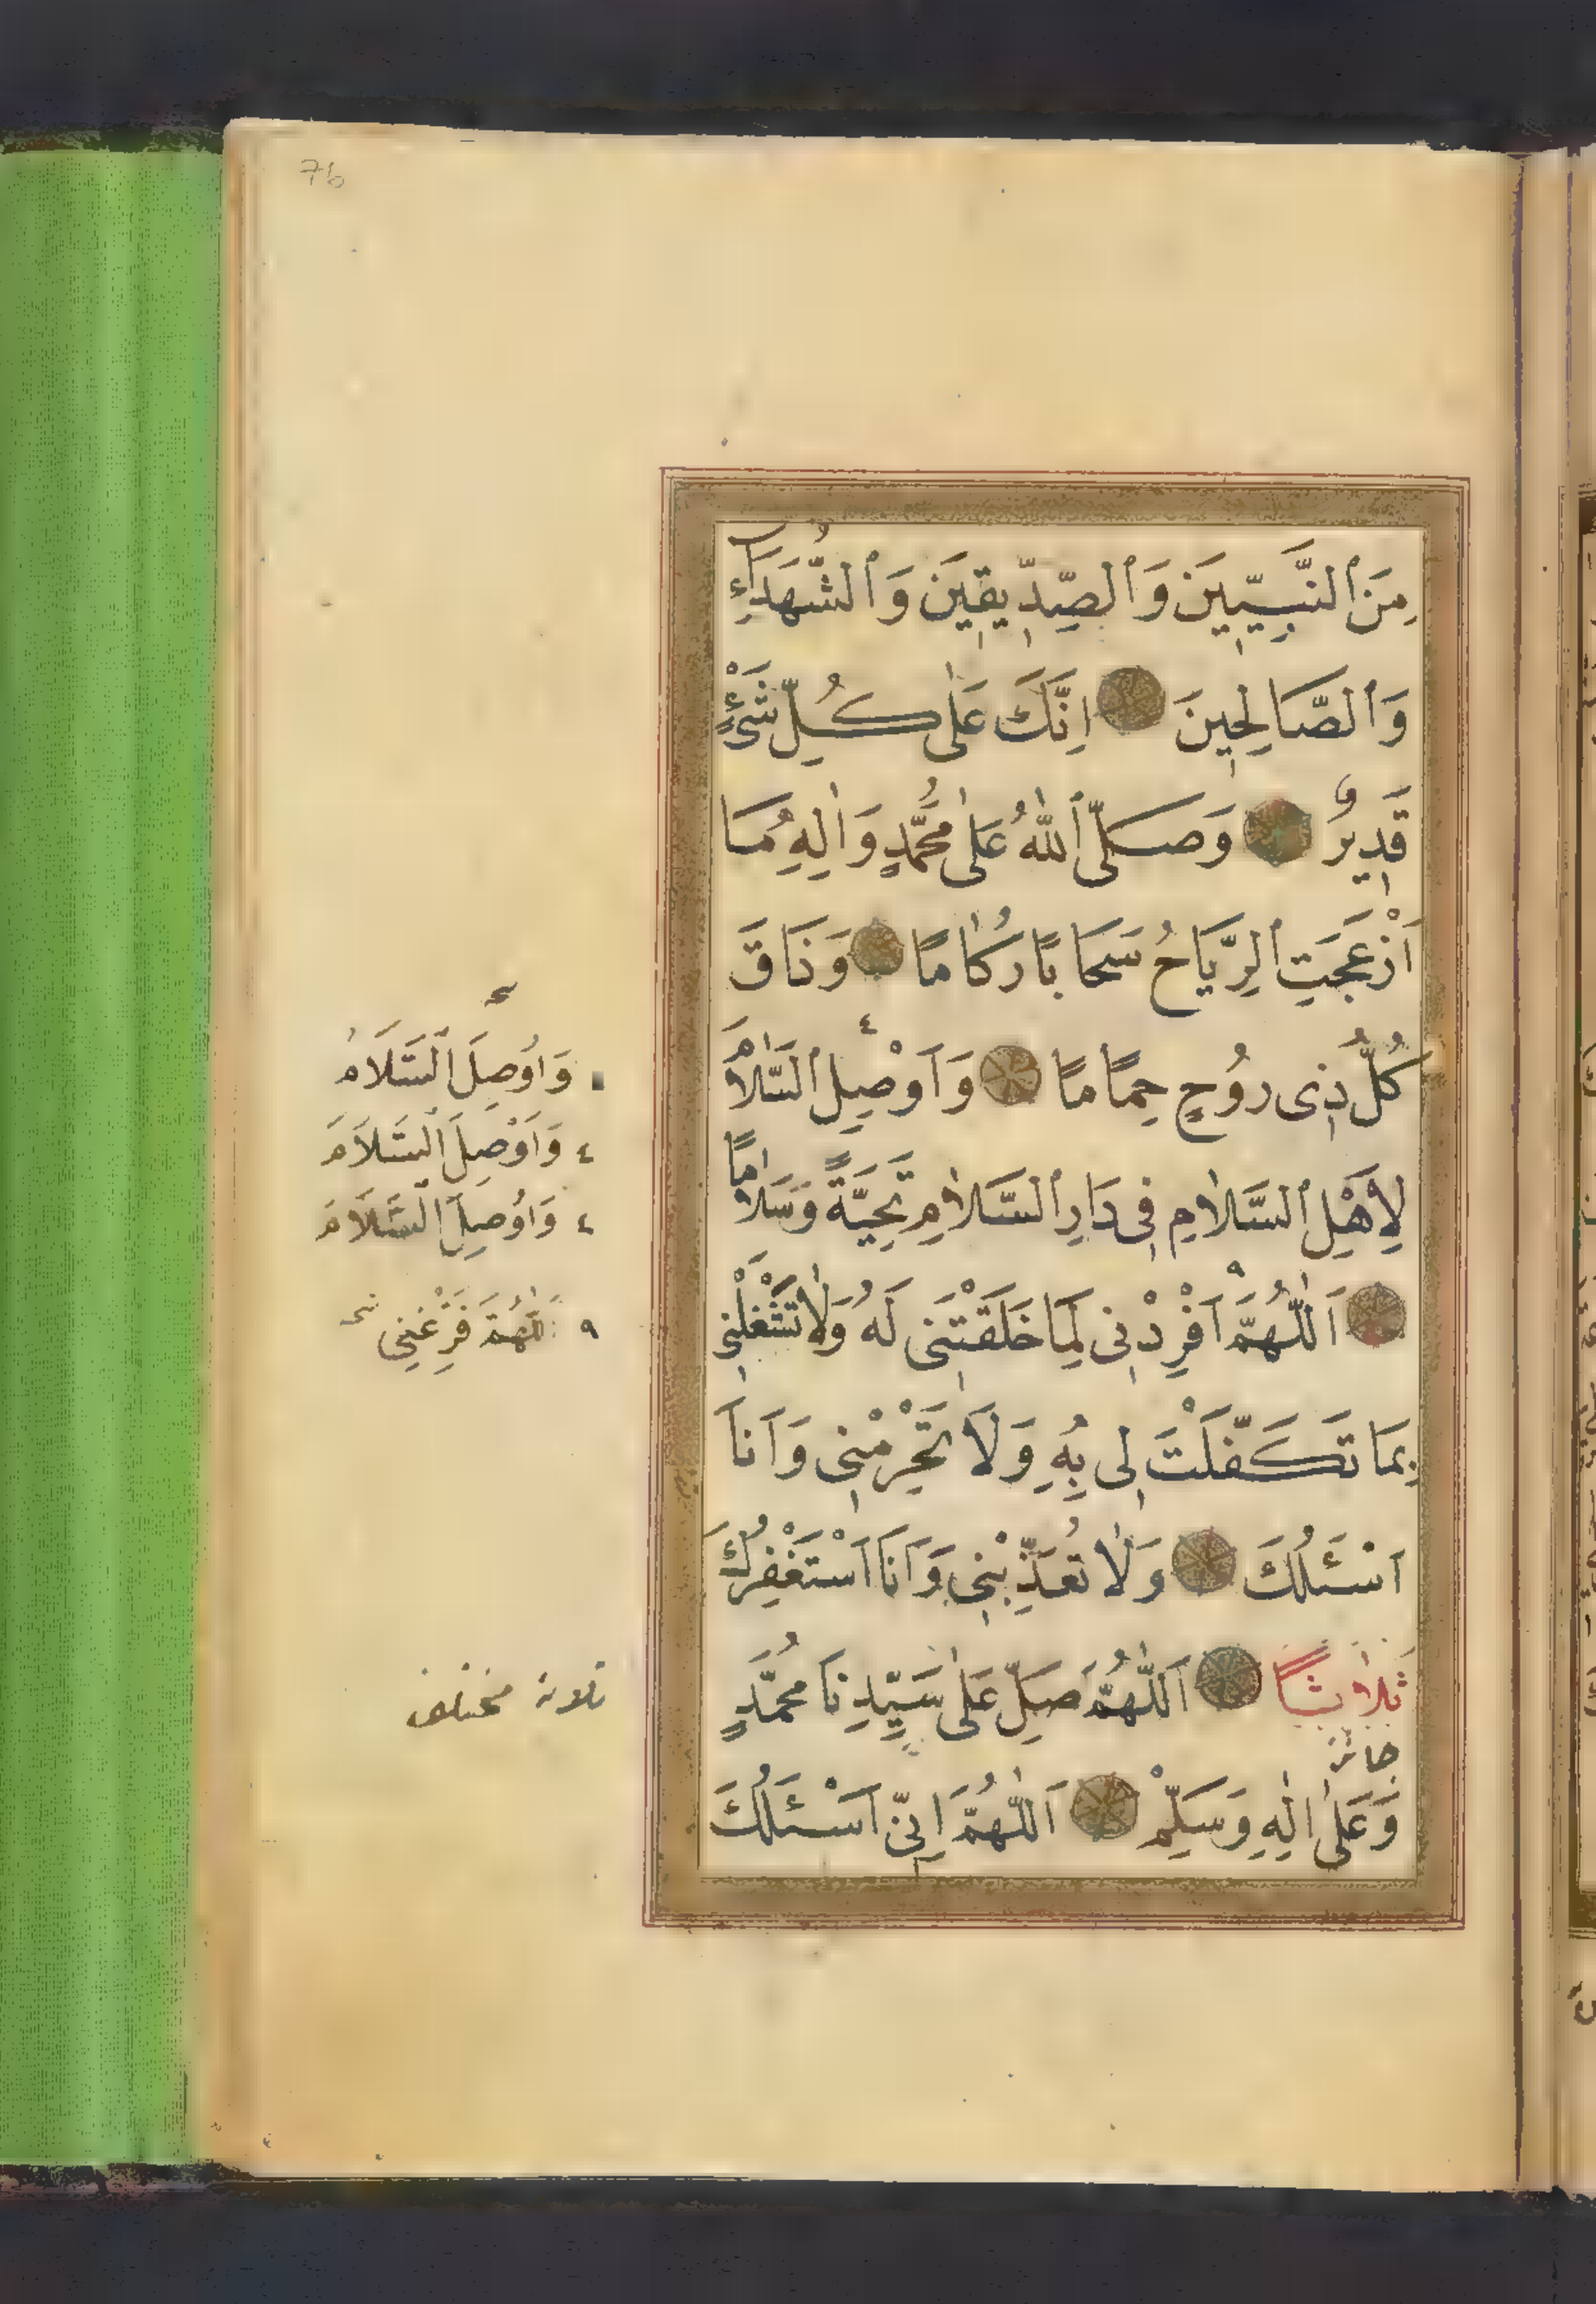 76
مِنَ ٱلنَّبِيّٖينَ وَٱلصِّدّٖيقٖينَ وَٱلشُّهَدَآءِ
وَٱلصَّالِحٖينَ اِنَّكَ عَلٰى كُلِّ شَىْءٍ
قَدٖيرٌ وَصَلَّى ٱللّٰهُ عَلٰى مُحَمَّدٍ وَاٰلِهٖ مَا
اَزْعَجَتِ ٱلرِّيَاحُ سَحَابًا رُكَامًا وَذَاقَ
كُلُّ ذٖى رُوحٍ حِمَامًا وَاَوْصِلِ ٱلسَّلَامَ
لِاَهْلِ ٱلسَّلَامِ فٖى دَارِ ٱلسَّلَامِ تَحِيَّةً وَسَلَامًا
اَللّٰهُمَّ اَفْرِدْنٖى لِمَا خَلَقْتَنٖى لَهُ وَلَا تَشْغَلْنٖى
بِمَا تَكَفَّلْتَ لٖى بِهٖ وَلَا تَحْرِمْنٖى وَاَنَا
اَسْئَلُكَ وَلَا تُعَذِّبْنٖى وَاَنَا اَسْتَغْفِرُكَ
ثَلَاثًا اَللّٰهُمَّ صَلِّ عَلٰى سَيِّدِنَا مُحَمَّدٍ
جائز
وَعَلٰى اٰلِهٖ وَسَلِّمْ اَللّٰهُمَّ اِنّٖى اَسْئَلُكَ
وَاُوصِلَ ٱلسَّلَامُ
٤ وَاَوْصِلَ ٱلسَّلَامَ
٤ وَاُوصِلِ ٱلسَّلَامَ
٩ اَللّٰهُمَّ فَرِّغْنِى
ثلاثة مختلف